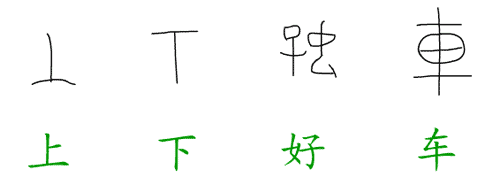 丄 丅 𡥃 車
上 下 好 车